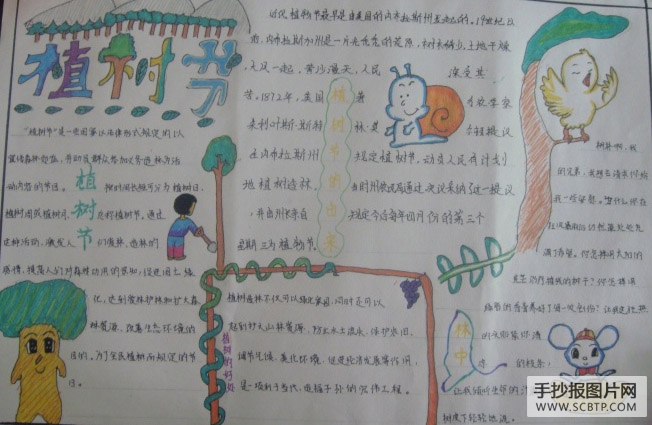 植树节
"植树节"是一些国家以法律形式规定的以
宣传森林效益,并动员群众参加义务造林为活
动内容的节日。
植树节
按时间长短可分为植树日、
植树周或植树月,总称植树节。通过
这种活动,激发人们爱林、造林的
感情,提高人们对森林功用的认识,促进国土绿
化,达到爱林护林和扩大森
林资源、改善生态环境的
目的。为了全民植树而规定的节
日。
近代植树节最早是由美国的内布拉斯州发起的。19世纪以
前,内布拉斯加州是一片光秃秃的荒原,树木稀少,土地干燥,
大风一起,黄沙满天,人民深受其
苦。1872年,美国著名农学家
朱利叶斯·斯特林·莫尔顿提议
在内布拉斯州规定植树节,动员人民有计划
地植树造林。当时州农业局通过决议采纳这一提议
,并由州长亲自规定今后每年四月份的第三个
星期三为植树节。
植树节的由来
植树造林不仅可以绿化家园,同时还可以
起到扩大山林资源、防止水土流失、保护农田、
调节气候、美化环境、促进经济发展等作用,
是一项利于当代、造福子孙的宏伟工程。
植树的好处
树林啊,我
的兄弟,
林中
让我
树皮下轻轻地流。
手抄报图片网
www.SCBTP.com